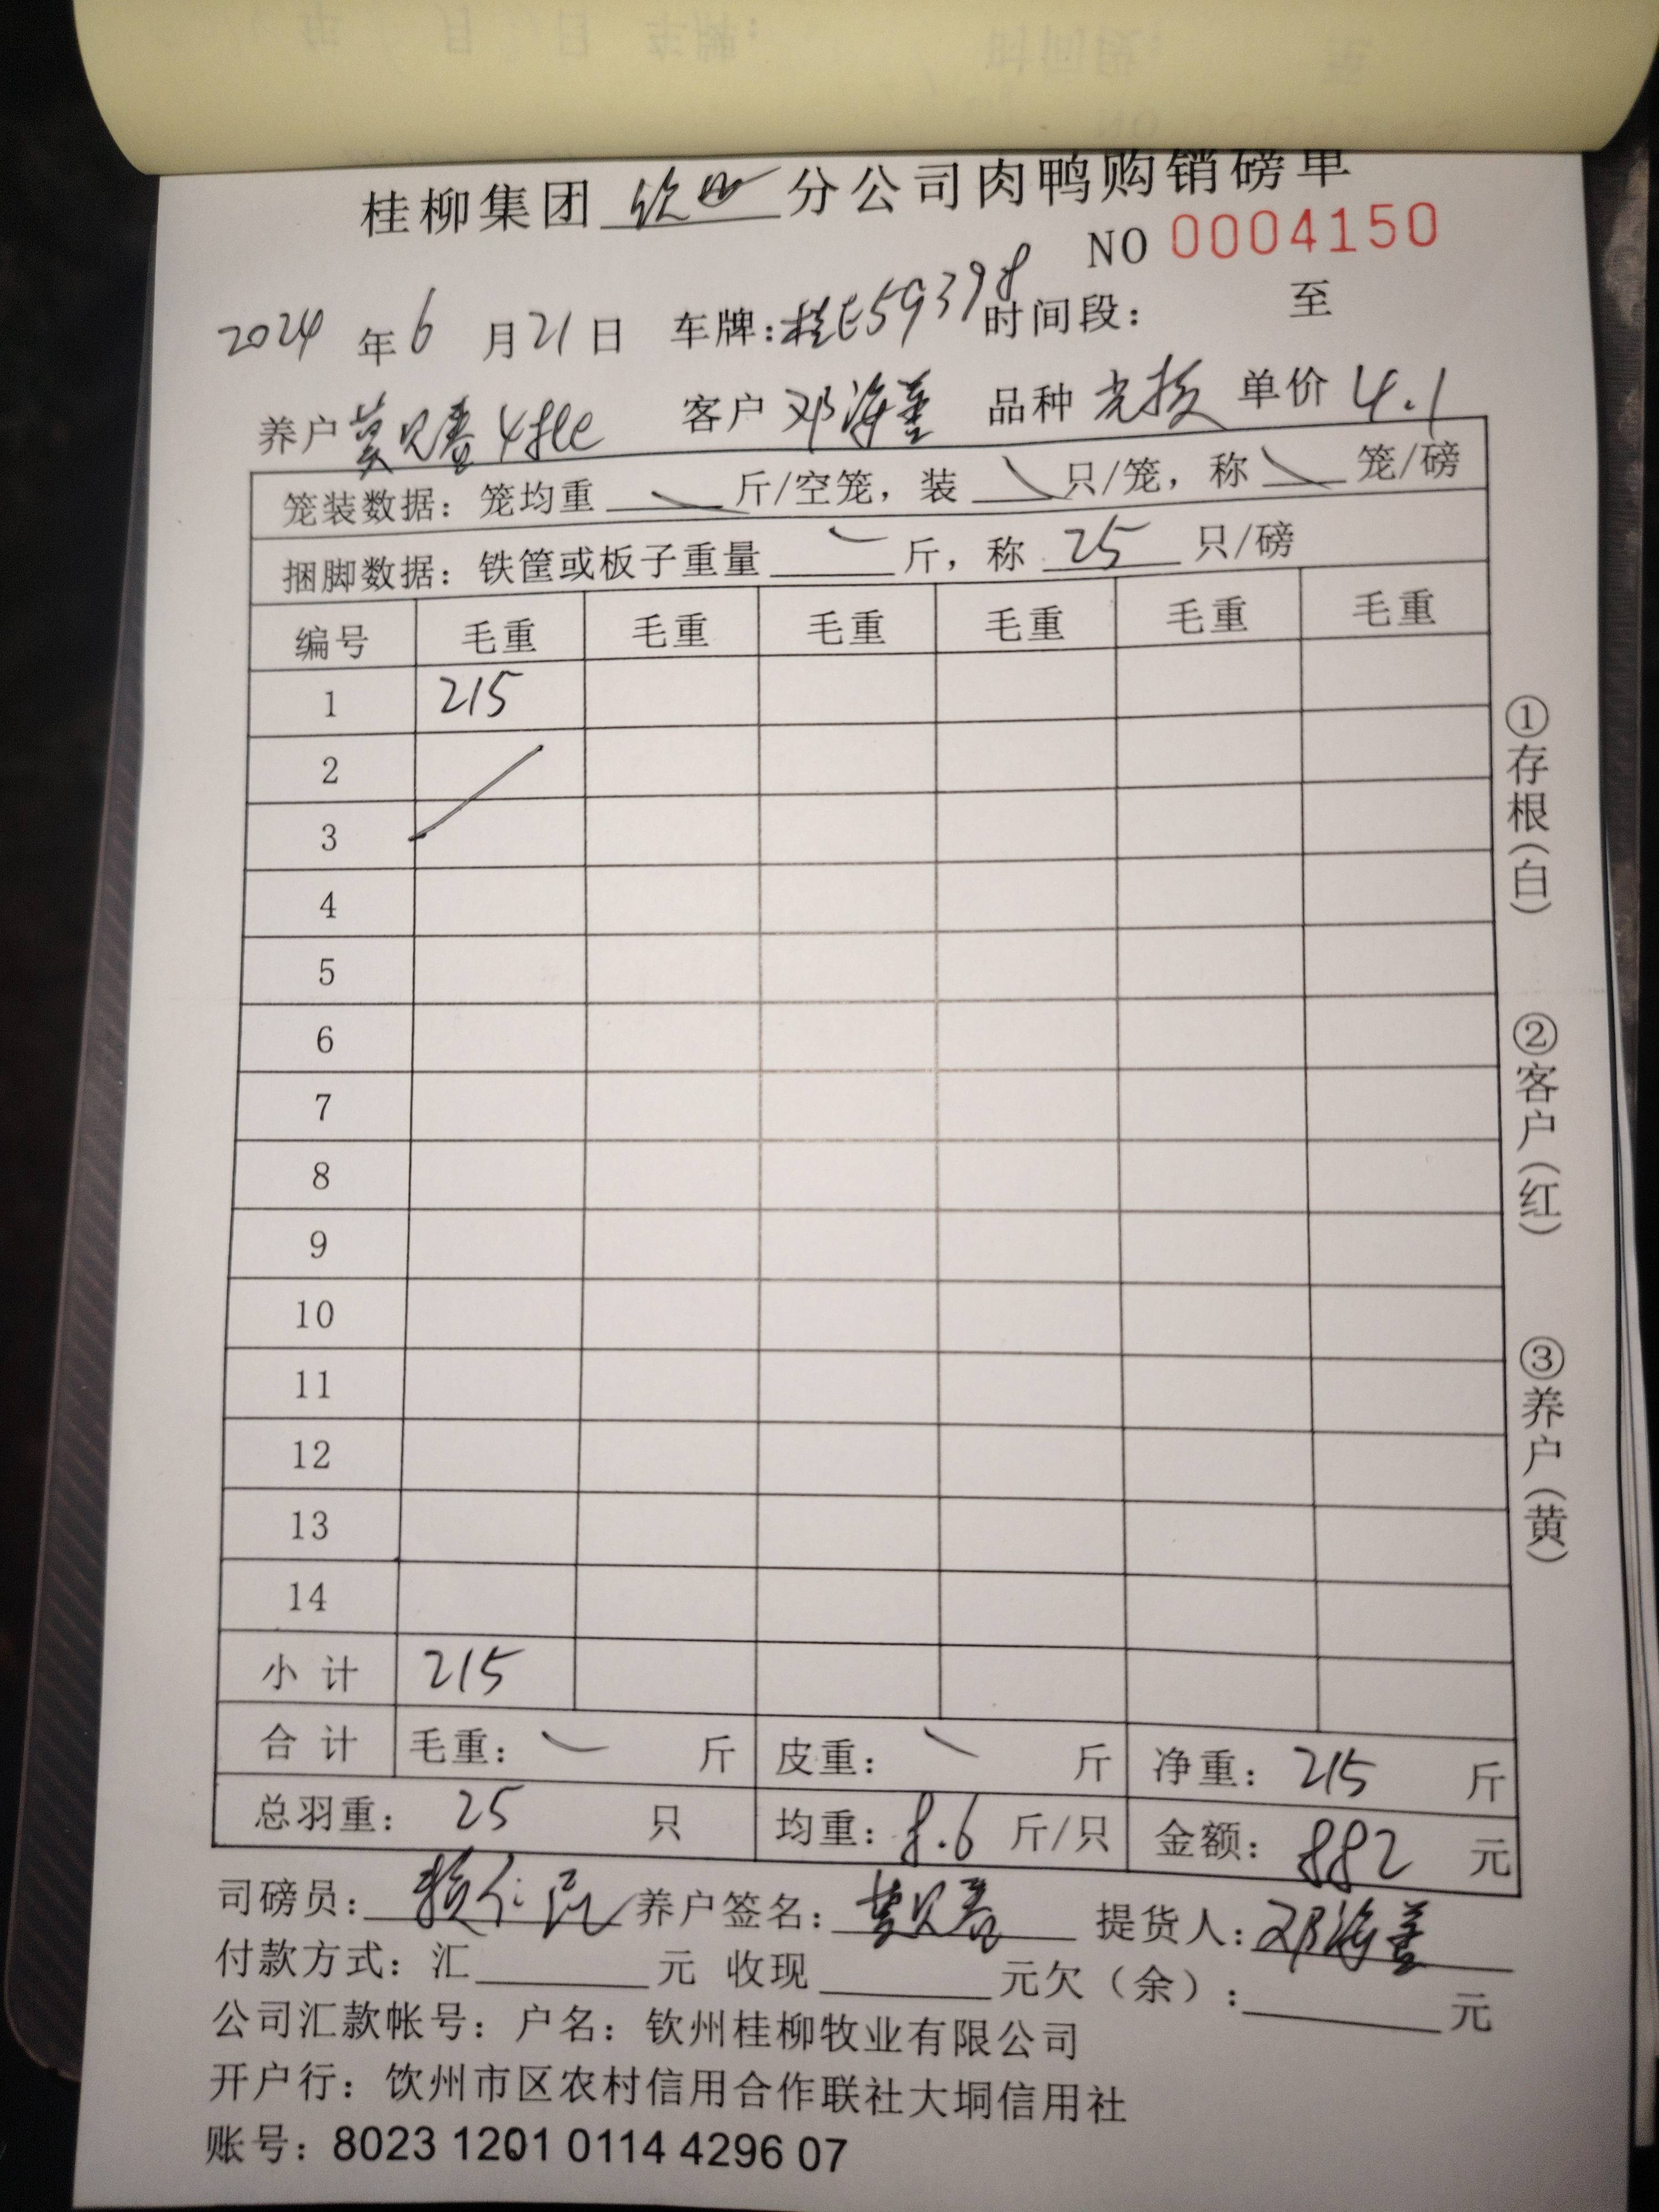 桂柳集团 钦州 分公司肉鸭购销磅单
NO 0004150
2024 年 6 月 21 日 车牌:桂E59398 时间段: 至
养户 客户 邓海善 品种 单价 4.1
笼装数据: 笼均重 斤/空笼, 装 只/笼, 称 笼/磅
捆脚数据: 铁筐或板子重量 斤, 称 25 只/磅
编号 毛重 毛重 毛重 毛重 毛重 毛重
1 215
2
3
4
5
6
7
8
9
10
11
12
13
14
小计 215
合计 毛重: 斤 皮重: 斤 净重: 215 斤
总羽重: 25 只 均重: 8.6 斤/只 金额: 882 元
司磅员: 养户签名: 提货人: 邓海善
付款方式: 汇 元 收现 元欠(余): 元
公司汇款帐号: 户名: 钦州桂柳牧业有限公司
开户行: 饮州市区农村信用合作联社大垌信用社
账号: 8023 1201 0114 4296 07
①存根(白)
②客户(红)
③养户(黄)